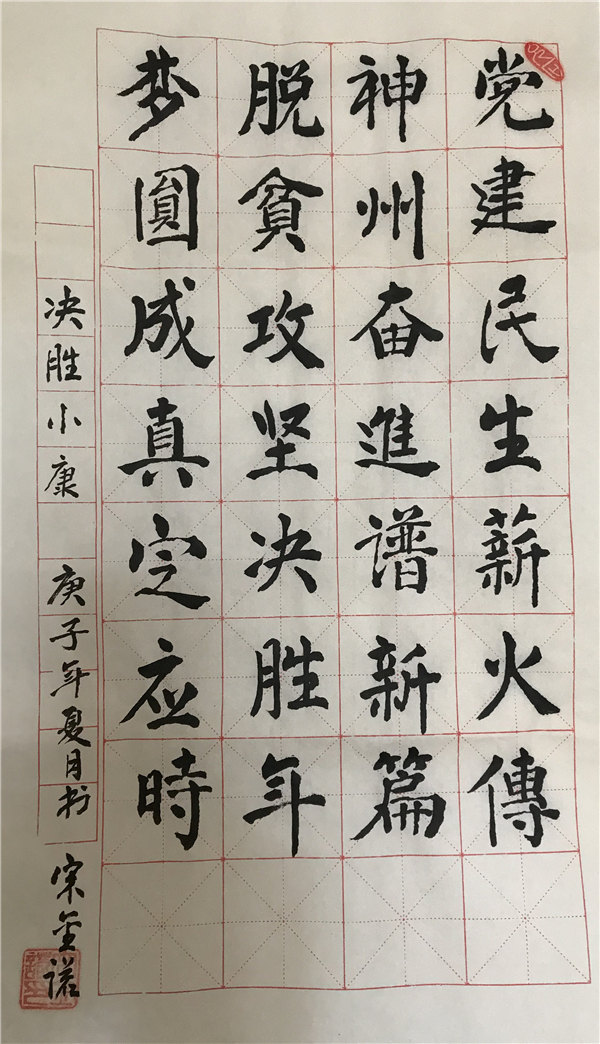 党建民生薪火傳
神州奋進谱新篇
脱貧攻坚决胜年
梦圓成真定应時
决胜小康
庚子年夏月书
宋金诺